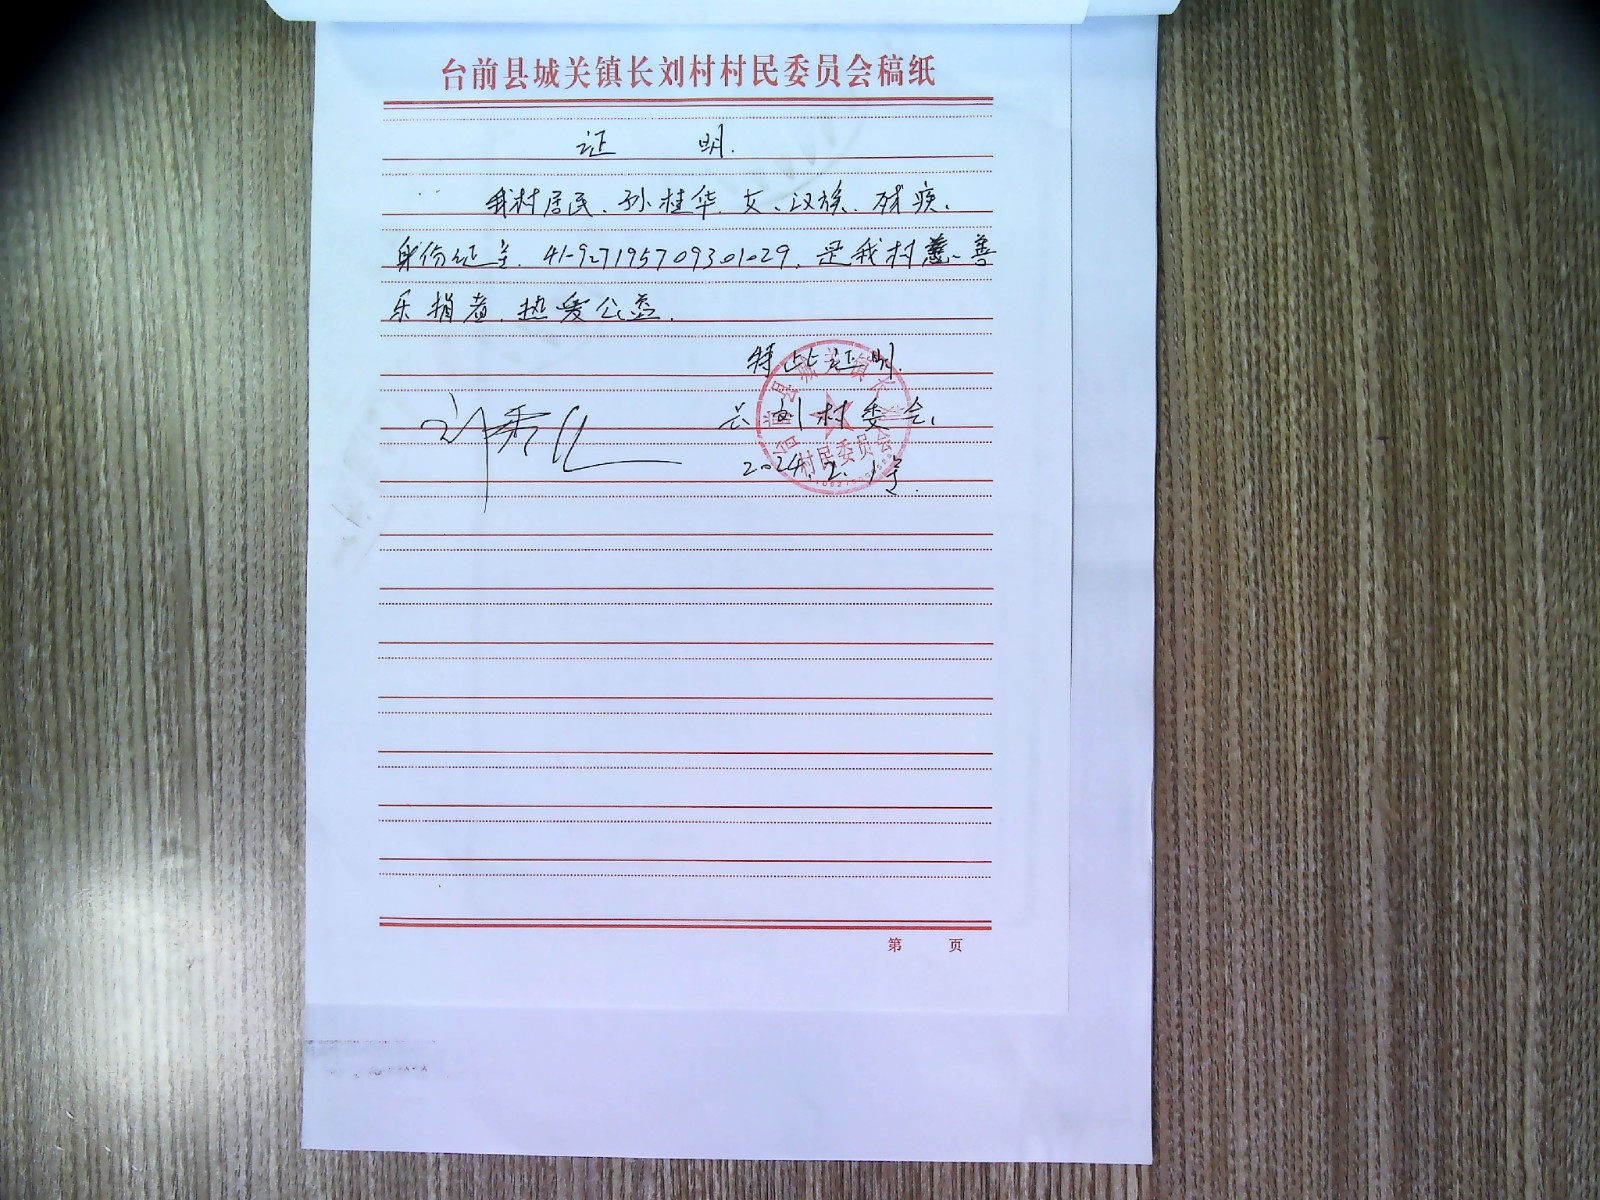 台前县城关镇长刘村村民委员会稿纸
证 明.
我村居民、孙桂华.女、汉族、残疾、
身份证号.
是我村慈善
乐捐者.热爱公益.
特此证明.
长刘村委会.
2024.2.1号.
村民委员会
第 页